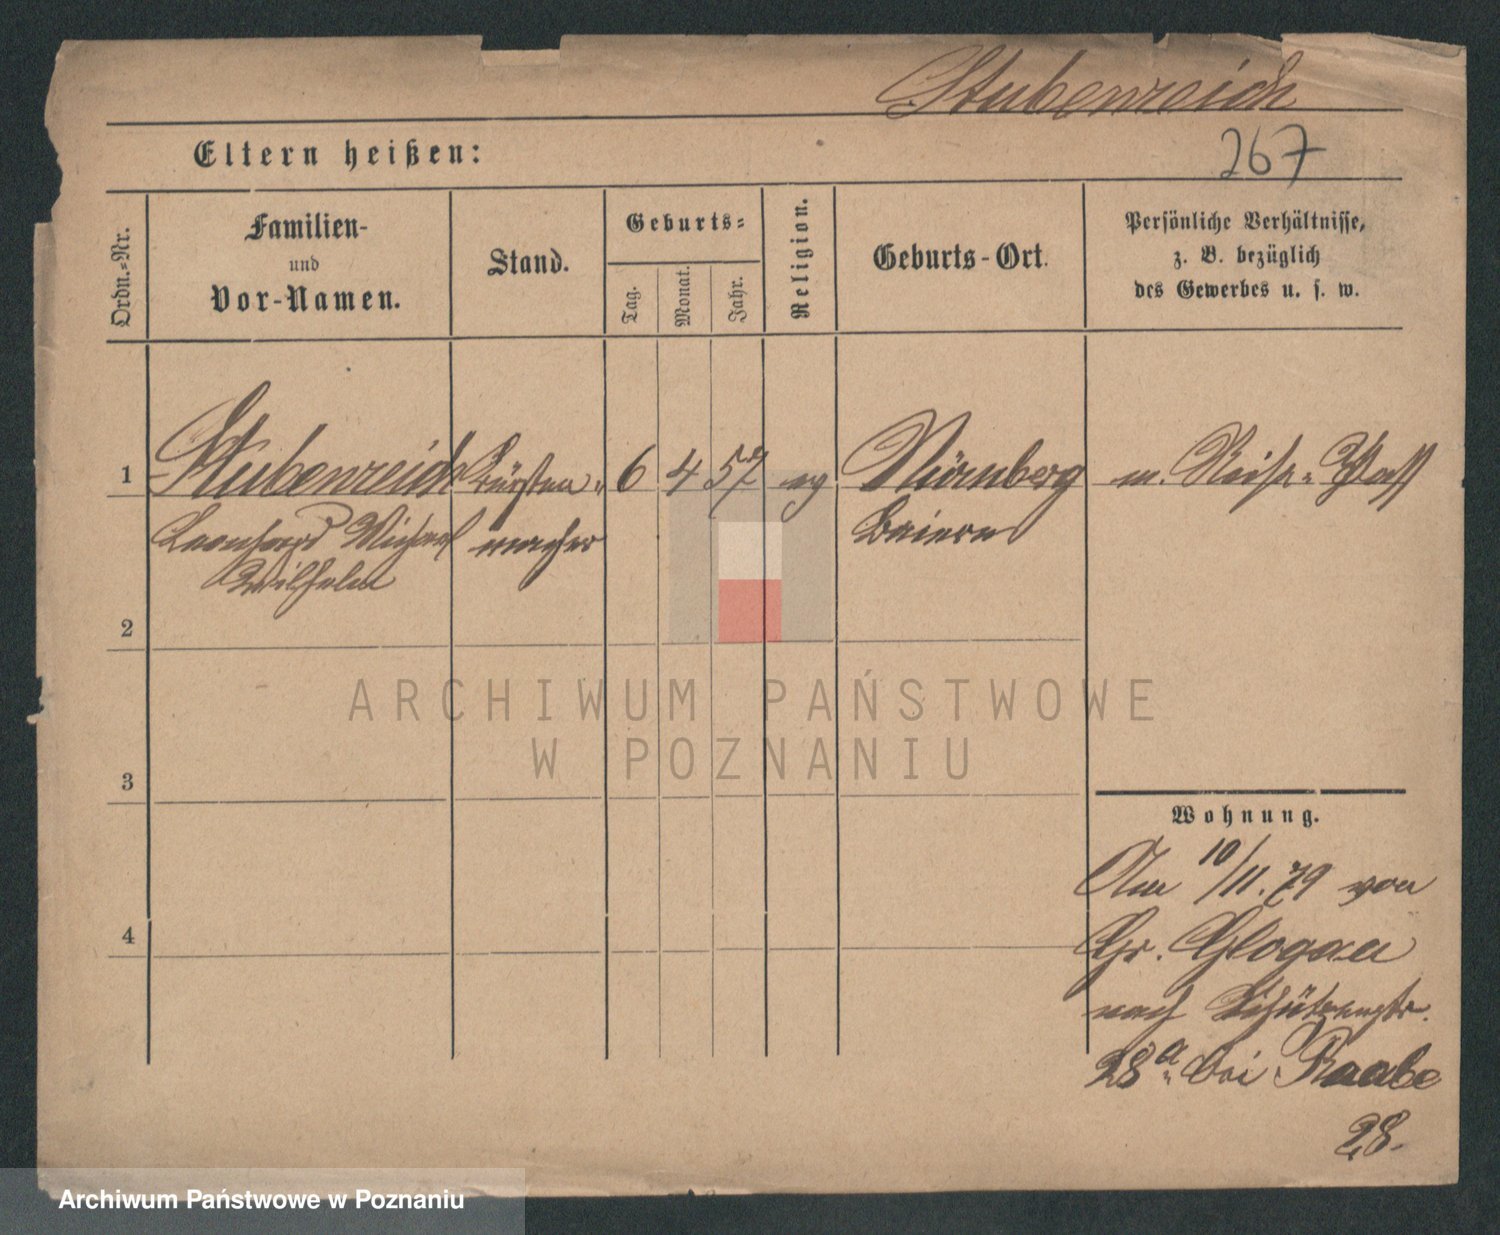 Stubenreich
267
Eltern heißen:
Ordn.-Nr.
Familien-
und
Vor-Namen.
Stand.
Geburts-
Tag.
Monat.
Jahr.
Religion.
Geburts-Ort.
Persönliche Verhältnisse,
z. B. bezüglich
des Gewerbes u. s. w.
1 Stubenreich Bürsten- 6 4 57 ev Nürnberg m. Reise-Paß
Leonhard Michael macher Baiern
Wilhelm
2
ARCHIWUM PAŃSTWOWE
W POZNANIU
3
Wohnung.
Am 10/11. 79 von
4 Gr. Glogau
nach Schützenstr.
28a bei Raabe
28.
Archiwum Państwowe w Poznaniu